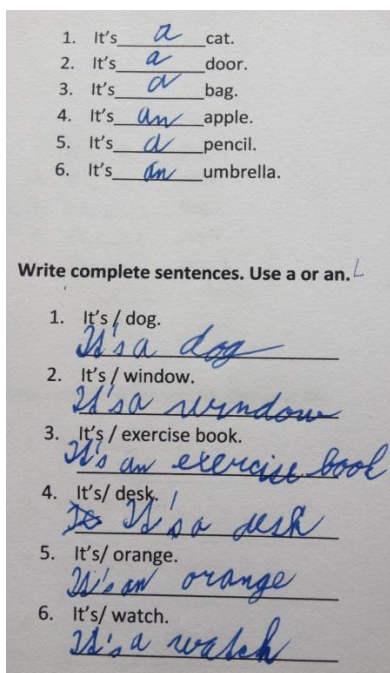 1. It's a cat.
2. It's a door.
3. It's a bag.
4. It's an apple.
5. It's a pencil.
6. It's an umbrella.
Write complete sentences. Use a or an.
1. It's / dog.
It's a dog
2. It's / window.
It's a window
3. It's / exercise book.
It's an exercise book
4. It's/ desk.
It's a desk
5. It's/ orange.
It's an orange
6. It's/ watch.
It's a watch